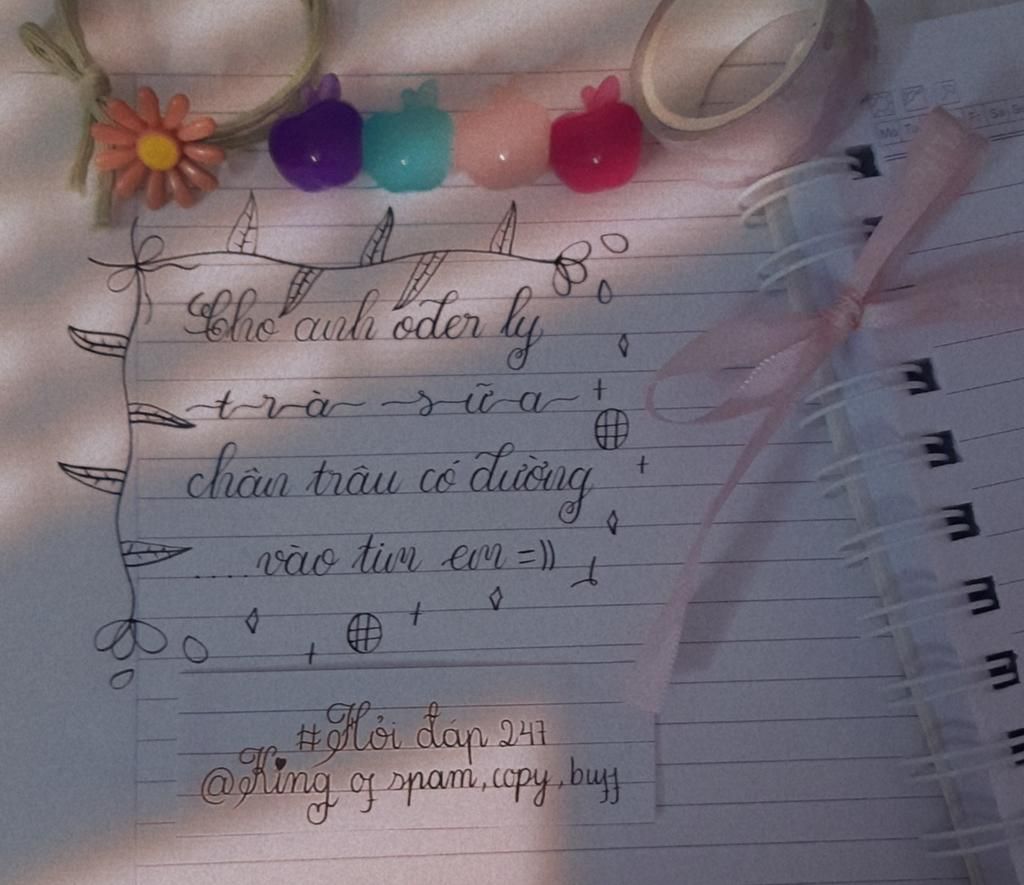 Mo Tu Fr Sa Su
Cho anh ođer ly
trà sữa
chân trâu có đường
.....vào tim em =))
#Hỏi đáp 247
@King of spam, copy, buff